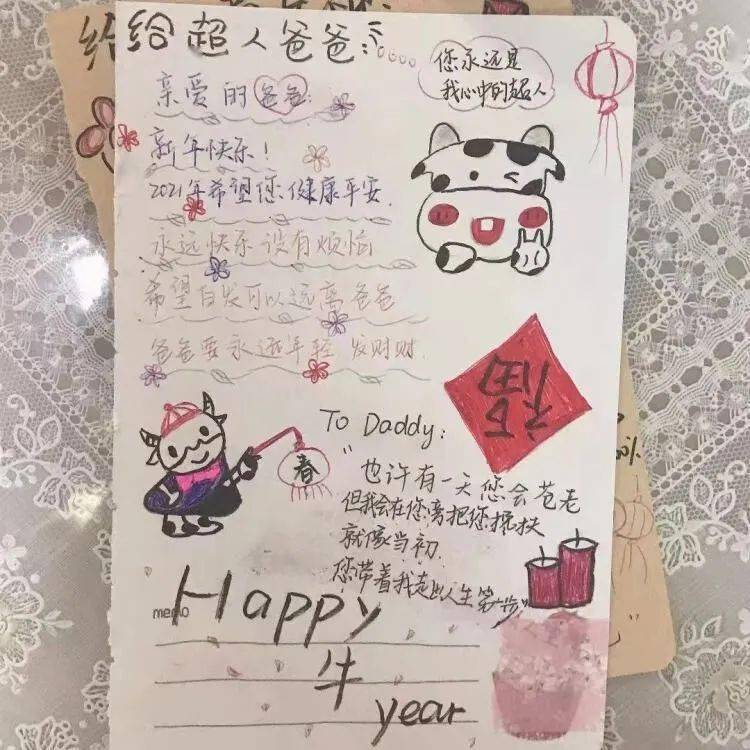 给超人爸爸:
您永远是
我心中的超人
亲爱的爸爸:
新年快乐!
2021年希望您健康平安.
永远快乐没有烦恼
希望白发可以远离爸爸
爸爸要永远年轻 发财财.
福
春
To Daddy:
"也许有一天您会苍老
但我会在您旁把您搀扶
就像当初
您带着我走出人生第一步"
memo
Happy
牛
year
给